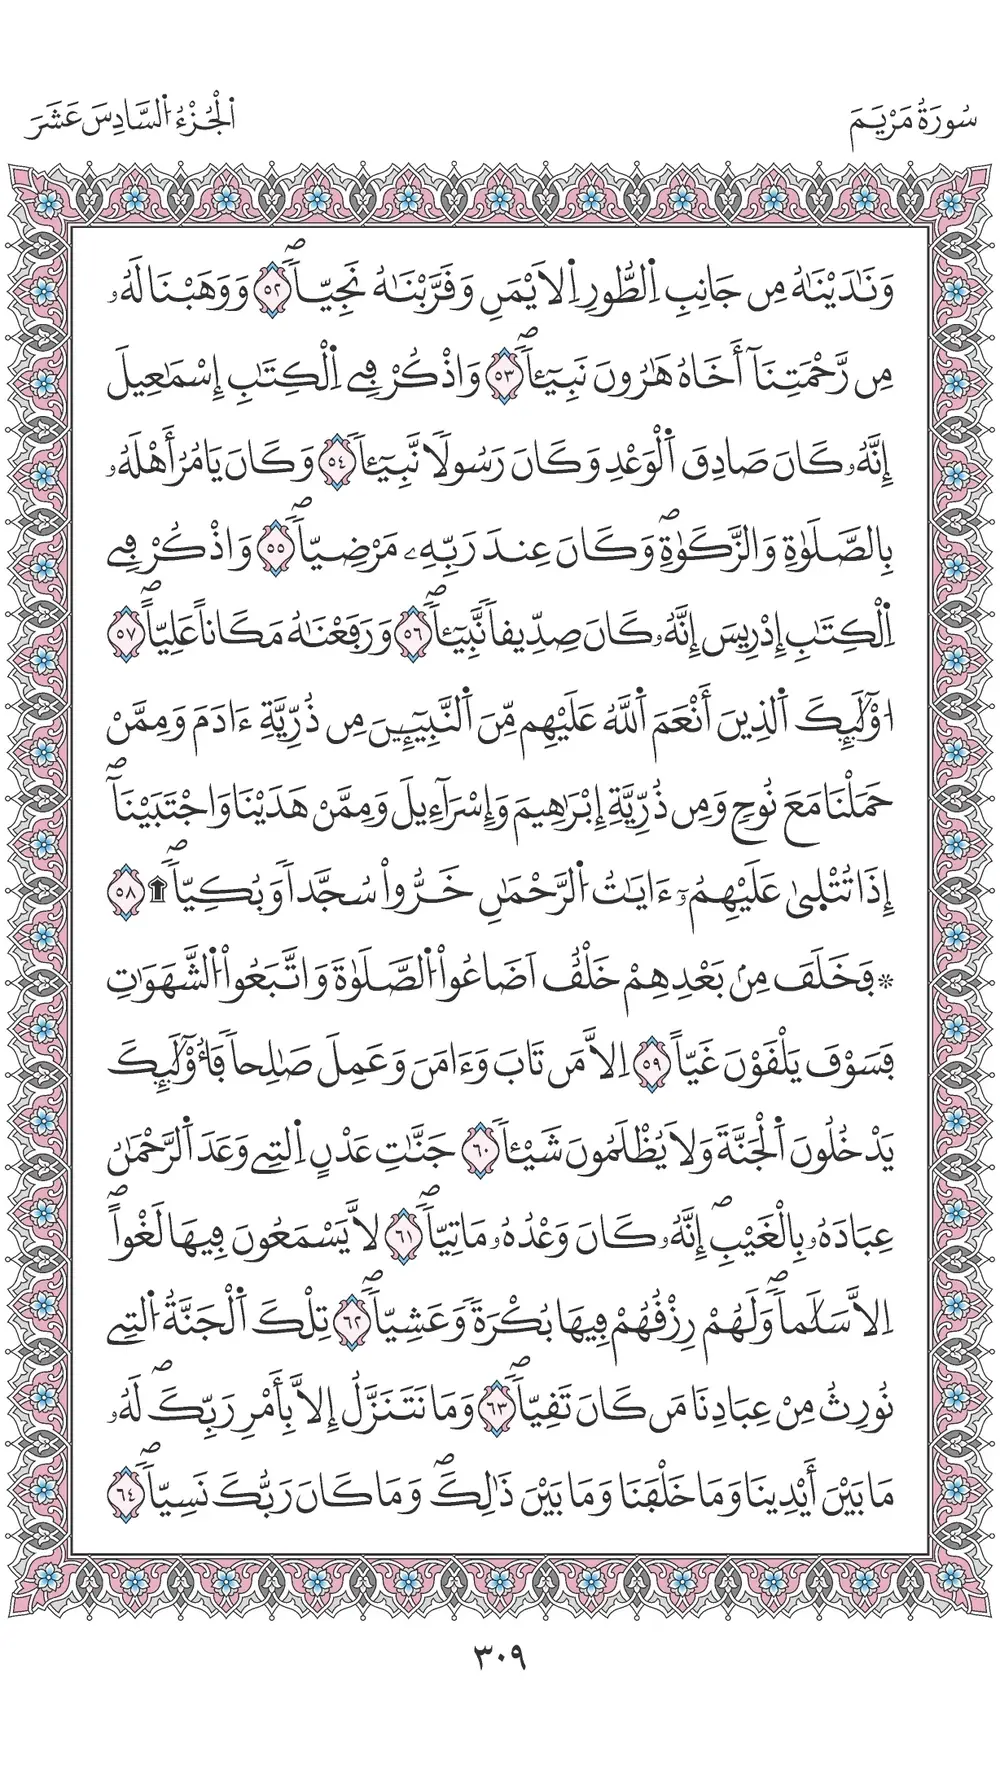 سُورَةُ مَرْيَمَ
اَلْجُزْءُ اُلسَّادِسَ عَشَرَ
وَنَٰدَيْنَٰهُ مِن جَانِبِ اِلطُّورِ اِلَايْمَنِ وَقَرَّبْنَٰهُ نَجِيّاٗۖ ٥٢ وَوَهَبْنَا لَهُۥ
مِن رَّحْمَتِنَآ أَخَاهُ هَٰرُونَ نَبِيٓـٔاٗۖ ٥٣ وَاذْكُرْ فِے اِلْكِتَٰبِ إِسْمَٰعِيلَ
إِنَّهُۥ كَانَ صَادِقَ اَلْوَعْدِ وَكَانَ رَسُولاٗ نَّبِيٓـٔاٗ ٥٤ وَكَانَ يَامُرُ أَهْلَهُۥ
بِالصَّلَوٰةِ وَالزَّكَوٰةِۖ وَكَانَ عِندَ رَبِّهِۦ مَرْضِيّاٗۖ ٥٥ وَاذْكُرْ فِے
اِلْكِتَٰبِ إِدْرِيسَ إِنَّهُۥ كَانَ صِدِّيقاٗ نَّبِيٓـٔاٗۖ ٥٦ وَرَفَعْنَٰهُ مَكَاناً عَلِيّاًۖ ٥٧
ا۟وْلَٰٓئِكَ اَلذِينَ أَنْعَمَ اَللَّهُ عَلَيْهِم مِّنَ اَلنَّبِيٓـِٕينَ مِن ذُرِّيَّةِ ءَادَمَ وَمِمَّنْ
حَمَلْنَا مَعَ نُوحٖ وَمِن ذُرِّيَّةِ إِبْرَٰهِيمَ وَإِسْرَآءِيلَ وَمِمَّنْ هَدَيْنَا وَاجْتَبَيْنَآۖ
إِذَا تُتْلَىٰ عَلَيْهِمُۥٓ ءَايَٰتُ اُلرَّحْمَٰنِ خَرُّواْ سُجَّداٗ وَبُكِيّاٗۖ ۩ ٥٨
* فَخَلَفَ مِنۢ بَعْدِهِمْ خَلْفٌ اَضَاعُواْ اُلصَّلَوٰةَ وَاتَّبَعُواْ اُلشَّهَوَٰتِ
فَسَوْفَ يَلْقَوْنَ غَيّاً ٥٩ اِلَّا مَن تَابَ وَءَامَنَ وَعَمِلَ صَٰلِحاٗ فَأُوْلَٰٓئِكَ
يَدْخُلُونَ اَلْجَنَّةَ وَلَا يُظْلَمُونَ شَيْـٔاٗ ٦٠ جَنَّٰتِ عَدْنٍ اِلتِے وَعَدَ اَلرَّحْمَٰنُ
عِبَادَهُۥ بِالْغَيْبِۖ إِنَّهُۥ كَانَ وَعْدُهُۥ مَاتِيّاٗۖ ٦١ لَّا يَسْمَعُونَ فِيهَا لَغْواًۖ
اِلَّا سَلَٰماٗۖ وَلَهُمْ رِزْقُهُمْ فِيهَا بُكْرَةٗ وَعَشِيّاٗۖ ٦٢ تِلْكَ اَلْجَنَّةُ اُلتِے
نُورِثُ مِنْ عِبَادِنَا مَن كَانَ تَقِيّاٗۖ ٦٣ وَمَا نَتَنَزَّلُ إِلَّا بِأَمْرِ رَبِّكَۖ لَهُۥ
مَا بَيْنَ أَيْدِينَا وَمَا خَلْفَنَا وَمَا بَيْنَ ذَٰلِكَۖ وَمَا كَانَ رَبُّكَ نَسِيّاٗۖ ٦٤
٣٠٩